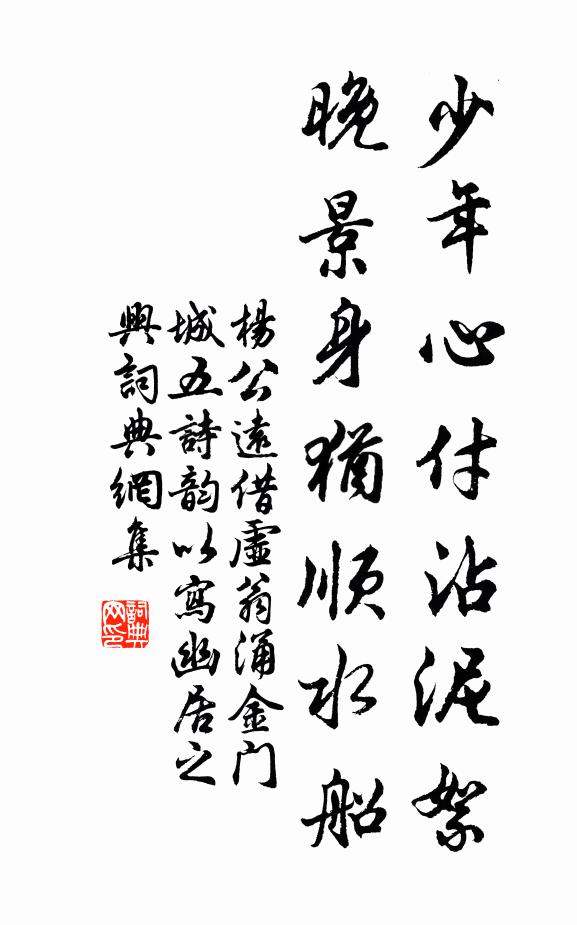 少年心付沾泥絮
晚景身猶順水船
楊公遠借虛翁涌金門
城五詩韵以寫幽居之
興詞典網集
詞典网印